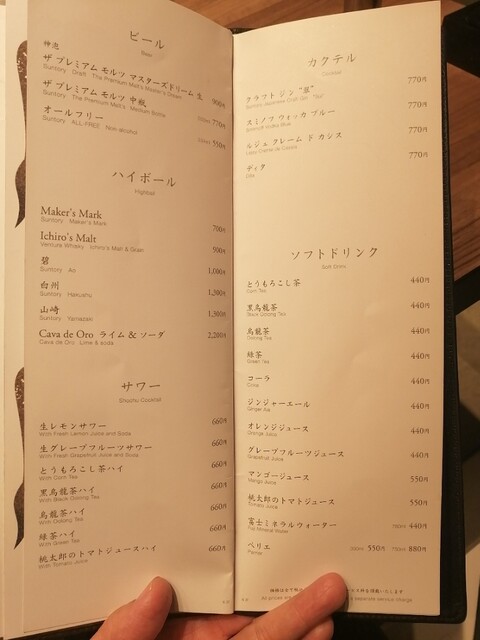 ビール
Beer
神泡
ザ プレミアム モルツ マスターズドリーム 生 900円
Suntory Draft The Premium Malt's Master's Dream
ザ プレミアム モルツ 中瓶 770円
Suntory The Premium Malt's Medium Bottle
オールフリー 550円
Suntory ALL-FREE Non alcohol
ハイボール
Highball
Maker's Mark 700円
Suntory Maker's Mark
Ichiro's Malt 900円
Venture Whisky Ichiro's Malt & Grain
碧 1,000円
Suntory Ao
白州 1,300円
Suntory Hakushu
山崎 1,300円
Suntory Yamazaki
Cava de Oro ライム & ソーダ 2,200円
Cava de Oro Lime & soda
サワー
Shochu Cocktail
生レモンサワー 660円
With Fresh Lemon Juice and Soda
生グレープフルーツサワー 660円
With Fresh Grapefruit Juice and Soda
とうもろこし茶ハイ 660円
With Corn Tea
黒烏龍茶ハイ 660円
With Black Oolong Tea
烏龍茶ハイ 660円
With Oolong Tea
緑茶ハイ 660円
With Green Tea
桃太郎のトマトジュースハイ 660円
With Tomato Juice
カクテル
Cocktail
クラフト ジン 770円
スミノフ ウォッカ ブルー 770円
Smirnoff Vodka Blue
ルジェ クレーム ド カシス 770円
Lejay Crème de Cassis
ディタ 770円
Dita
ソフトドリンク
Soft Drink
とうもろこし茶 440円
Corn Tea
黒烏龍茶 440円
Black Oolong Tea
烏龍茶 440円
Oolong Tea
緑茶 440円
Green Tea
コーラ 440円
Coke
ジンジャーエール 440円
Ginger Ale
オレンジジュース 440円
Orange Juice
グレープフルーツジュース 440円
Grapefruit Juice
マンゴージュース 550円
Mango Juice
桃太郎のトマトジュース 550円
Tomato Juice
富士ミネラルウォーター 440円
Fuji Mineral Water
ペリエ 550円 880円
Perrier